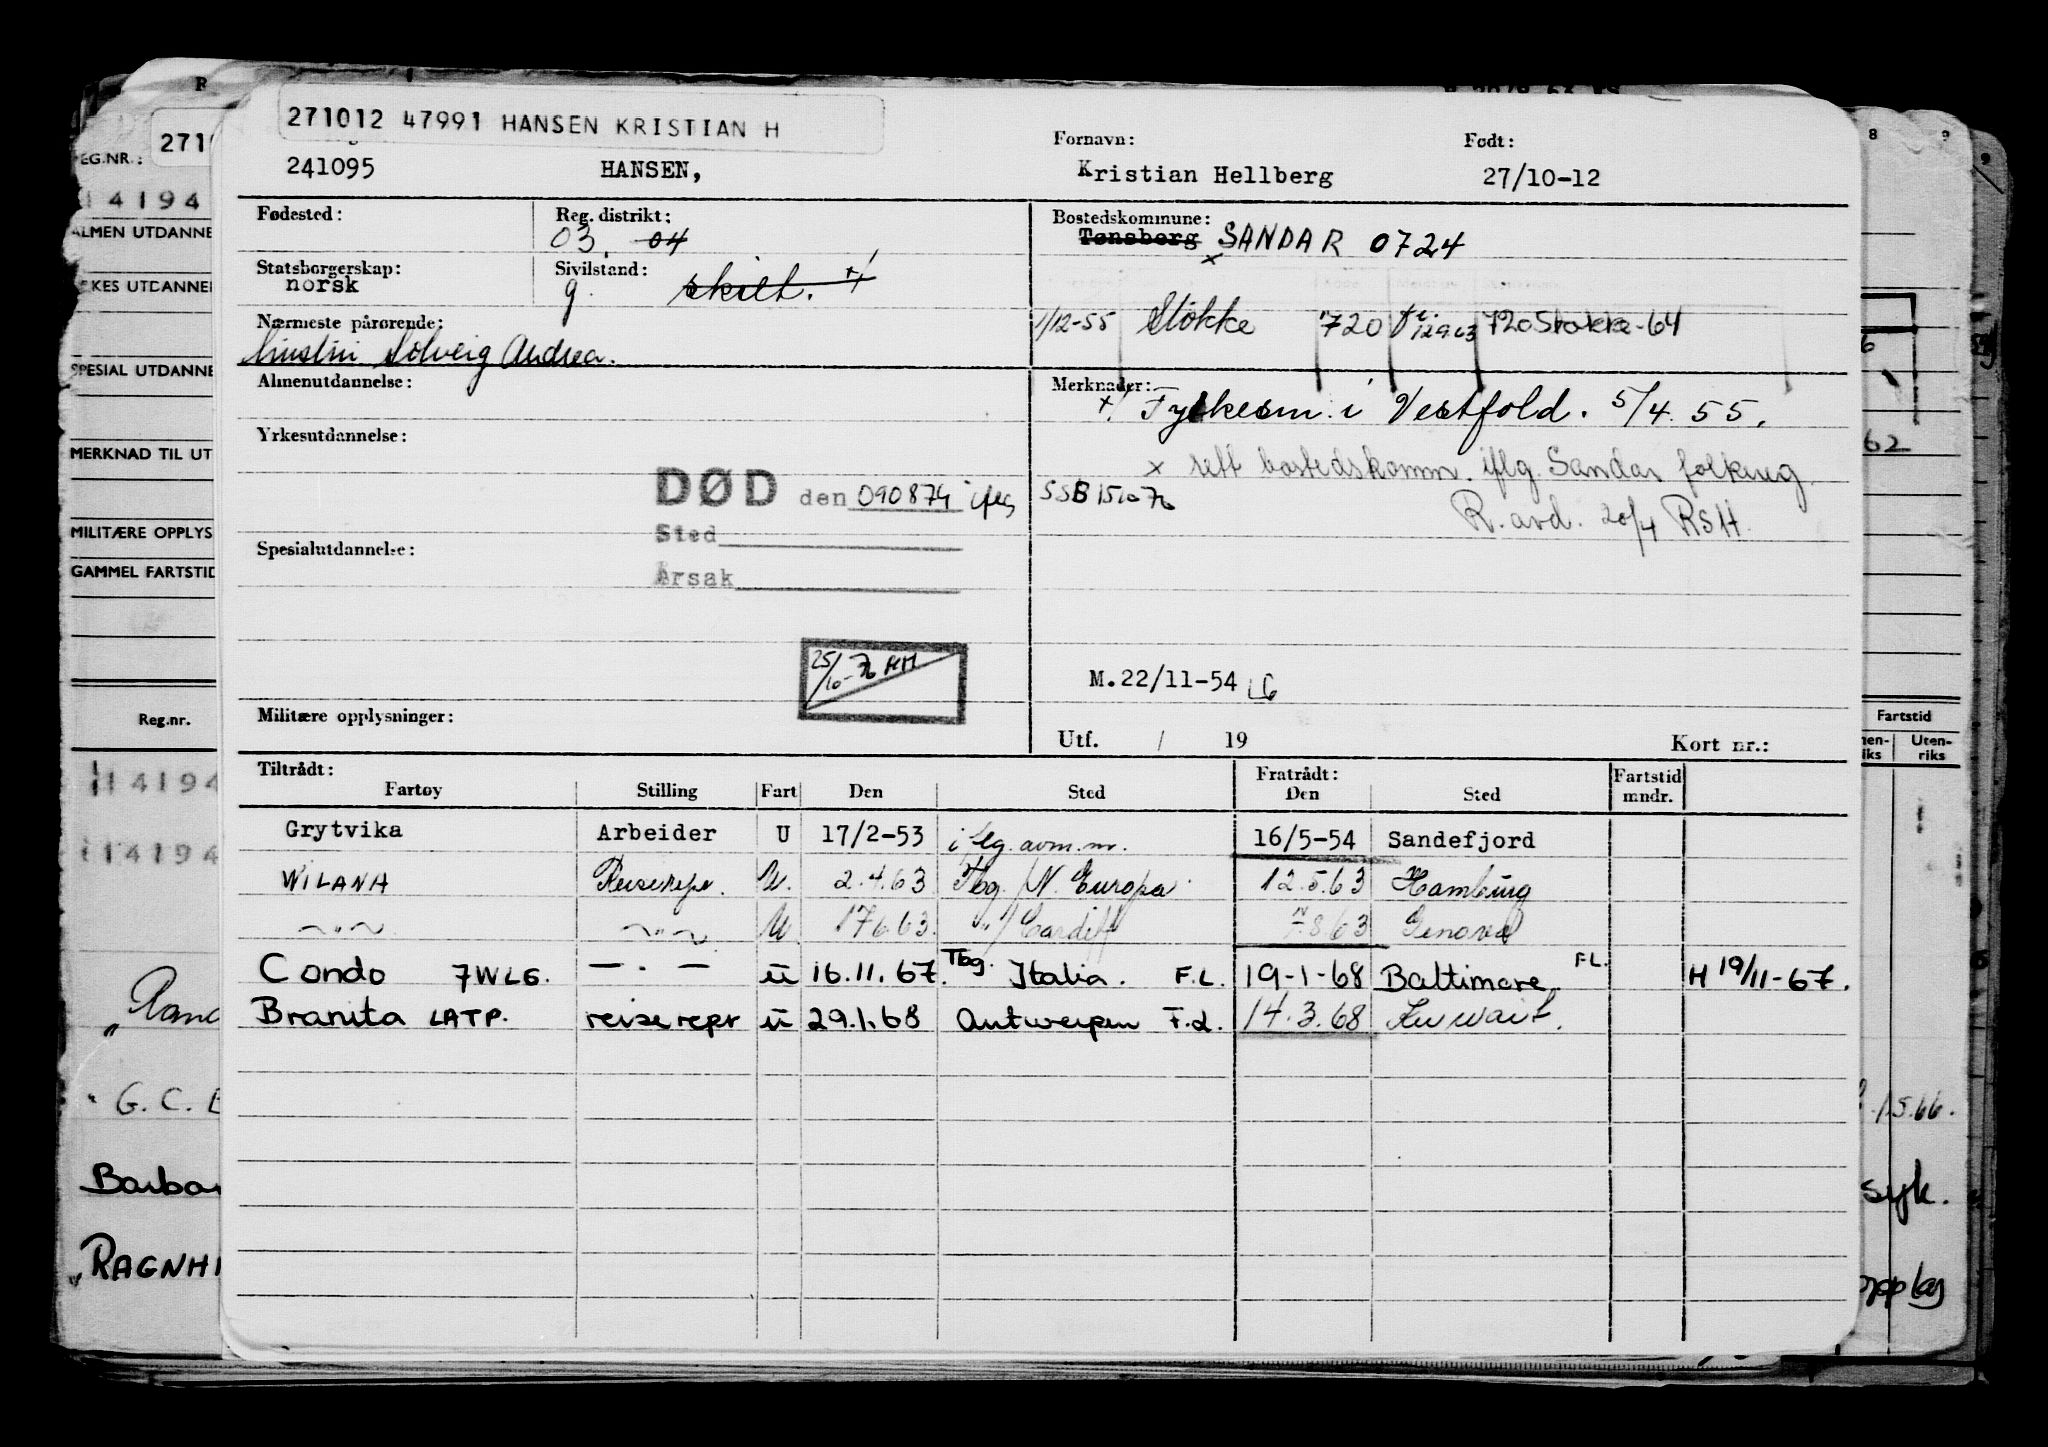 271012 47991 HANSEN KRISTIAN H
241095 HANSEN,
Fornavn: Født:
Kristian Hellberg 27/10-12
Fødested: Reg. distrikt: Bostedskommune:
03. 04 Tønsberg x SANDAR 0724
Statsborgerskap: Sivilstand:
norsk g. skilt. x/
Nærmeste pårørende: 1/12-55 Stokke 720 12963 720 Stokke-64
Solveig Andrea.
Almenutdannelse: Merknader:
x/ Fylkesm. i Vestfold. 5/4. 55.
Yrkesutdannelse:
x rett bostedskomm. iflg. Sandar folkereg.
DØD den 090874 iflg SSB 151076
R. avd. 20/4 RSH.
Sted
Spesialutdannelse:
Årsak
25/10-76 HH
M.22/11-54 LG
Militære opplysninger:
Utf. / 19 Kort nr.:
Tiltrådt: Fratrådt: Fartstid
Fartøy Stilling Fart Den Sted Den Sted mndr.
Grytvika Arbeider U 17/2-53 iflg. avm.m. 16/5-54 Sandefjord
WILANA Reiserepr. U. 2.4.63 Tbg. / N. Europa 12.5.63 Hamburg
~"~ ~"~ U 17663. "/ Cardiff 7.8.63 Genova
Condo 7WLG. —.— U 16.11.67. Tbg. Italia. F.L. 19-1-68 Baltimore. FL. H 19/11-67.
Branita LATP. reiserepr U 29.1.68 Antwerpen F.L. 14.3.68 Kuwait.
271
EG.NR.:
14194
ALMEN UTDANNE
KES UTDANNE
SPESIAL UTDANNE
MERKNAD TIL UT
MILITÆRE OPPLYS
GAMMEL FARTSTID
Reg.nr.
14194
14194
G. C.
Barbar
RAGNHI
8 9
62
Fartstid
nen-riks Uten-riks
15.66.
syk.